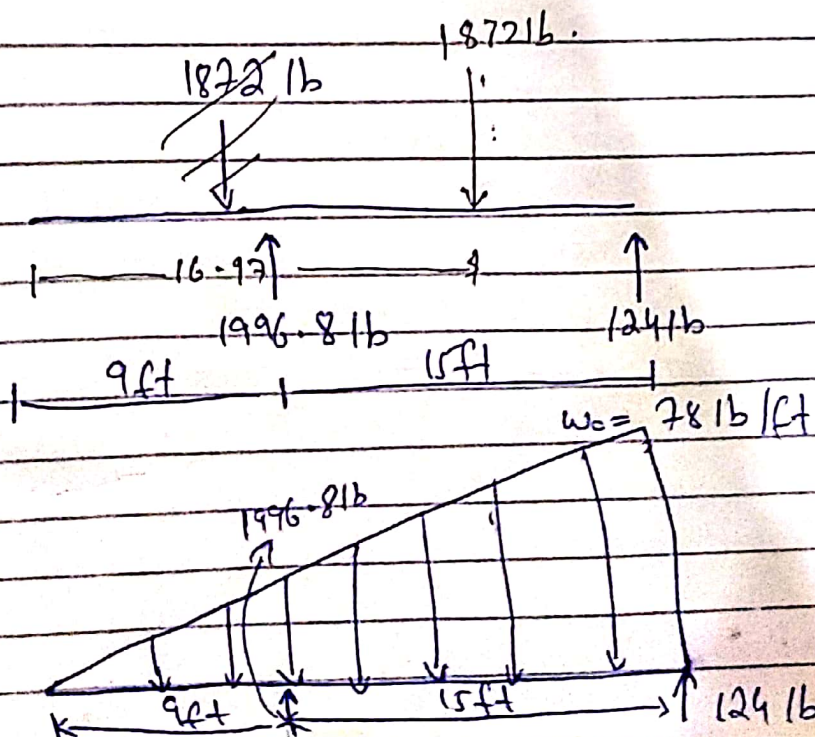 1872 lb.
1872 lb
16.97
1996.8 lb
124 lb
9ft
15ft
w₀ = 78 lb/ft
1996.8 lb
9ft
15ft
124 lb